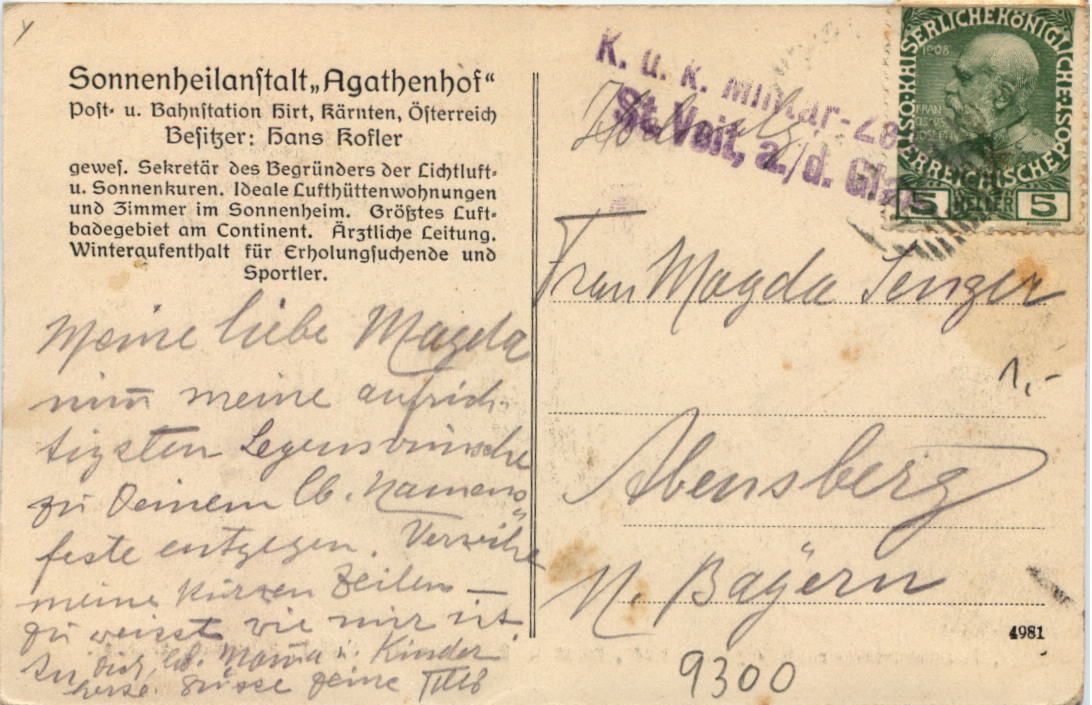 Sonnenheilanstalt „Agathenhof“
Post- u. Bahnstation Hirt, Kärnten, Österreich
Besitzer: Hans Kofler
gewes. Sekretär des Begründers der Lichtluft-
u. Sonnenkuren. Ideale Lufthüttenwohnungen
und Zimmer im Sonnenheim. Größtes Luft-
badegebiet am Continent. Ärztliche Leitung.
Winteraufenthalt für Erholungsuchende und
Sportler.
Meine liebe Magda
nim̅ meine aufrich-
tigsten Segenswünsche
zu Deinem lb. Namens-
feste entgegen. Verzeihe
meine kurzen Zeilen —
Du weisst wie mir ist.
An Dich, lb. Mama u. Kinder
herzl. Grüsse Deine
K. u. K. Militär-Ze
St. Veit, a./d. Gla
KAISERLICHE KÖNIGLICHE
ÖSTERREICHISCHE POST
1908
FRANZ
JOSEPH I
5 HELLER 5
Frau Magda Senger
1,-
Abensberg
N. Bayern
4981
9300